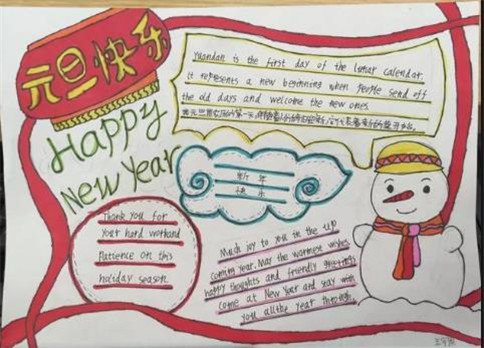 元旦快乐
Happy
New Year
Yuandan is the first day of the lunar calendar.
It represents a new beginning when people send off
the old days and welcome the new ones.
新年
快乐
Thank you for
your hard workand
Patience on this
holiday season.
Much joy to you in the up
coming year. May the warmest wishes
happy thoughts and friendly
come at New Year and stay with
you all the year through.